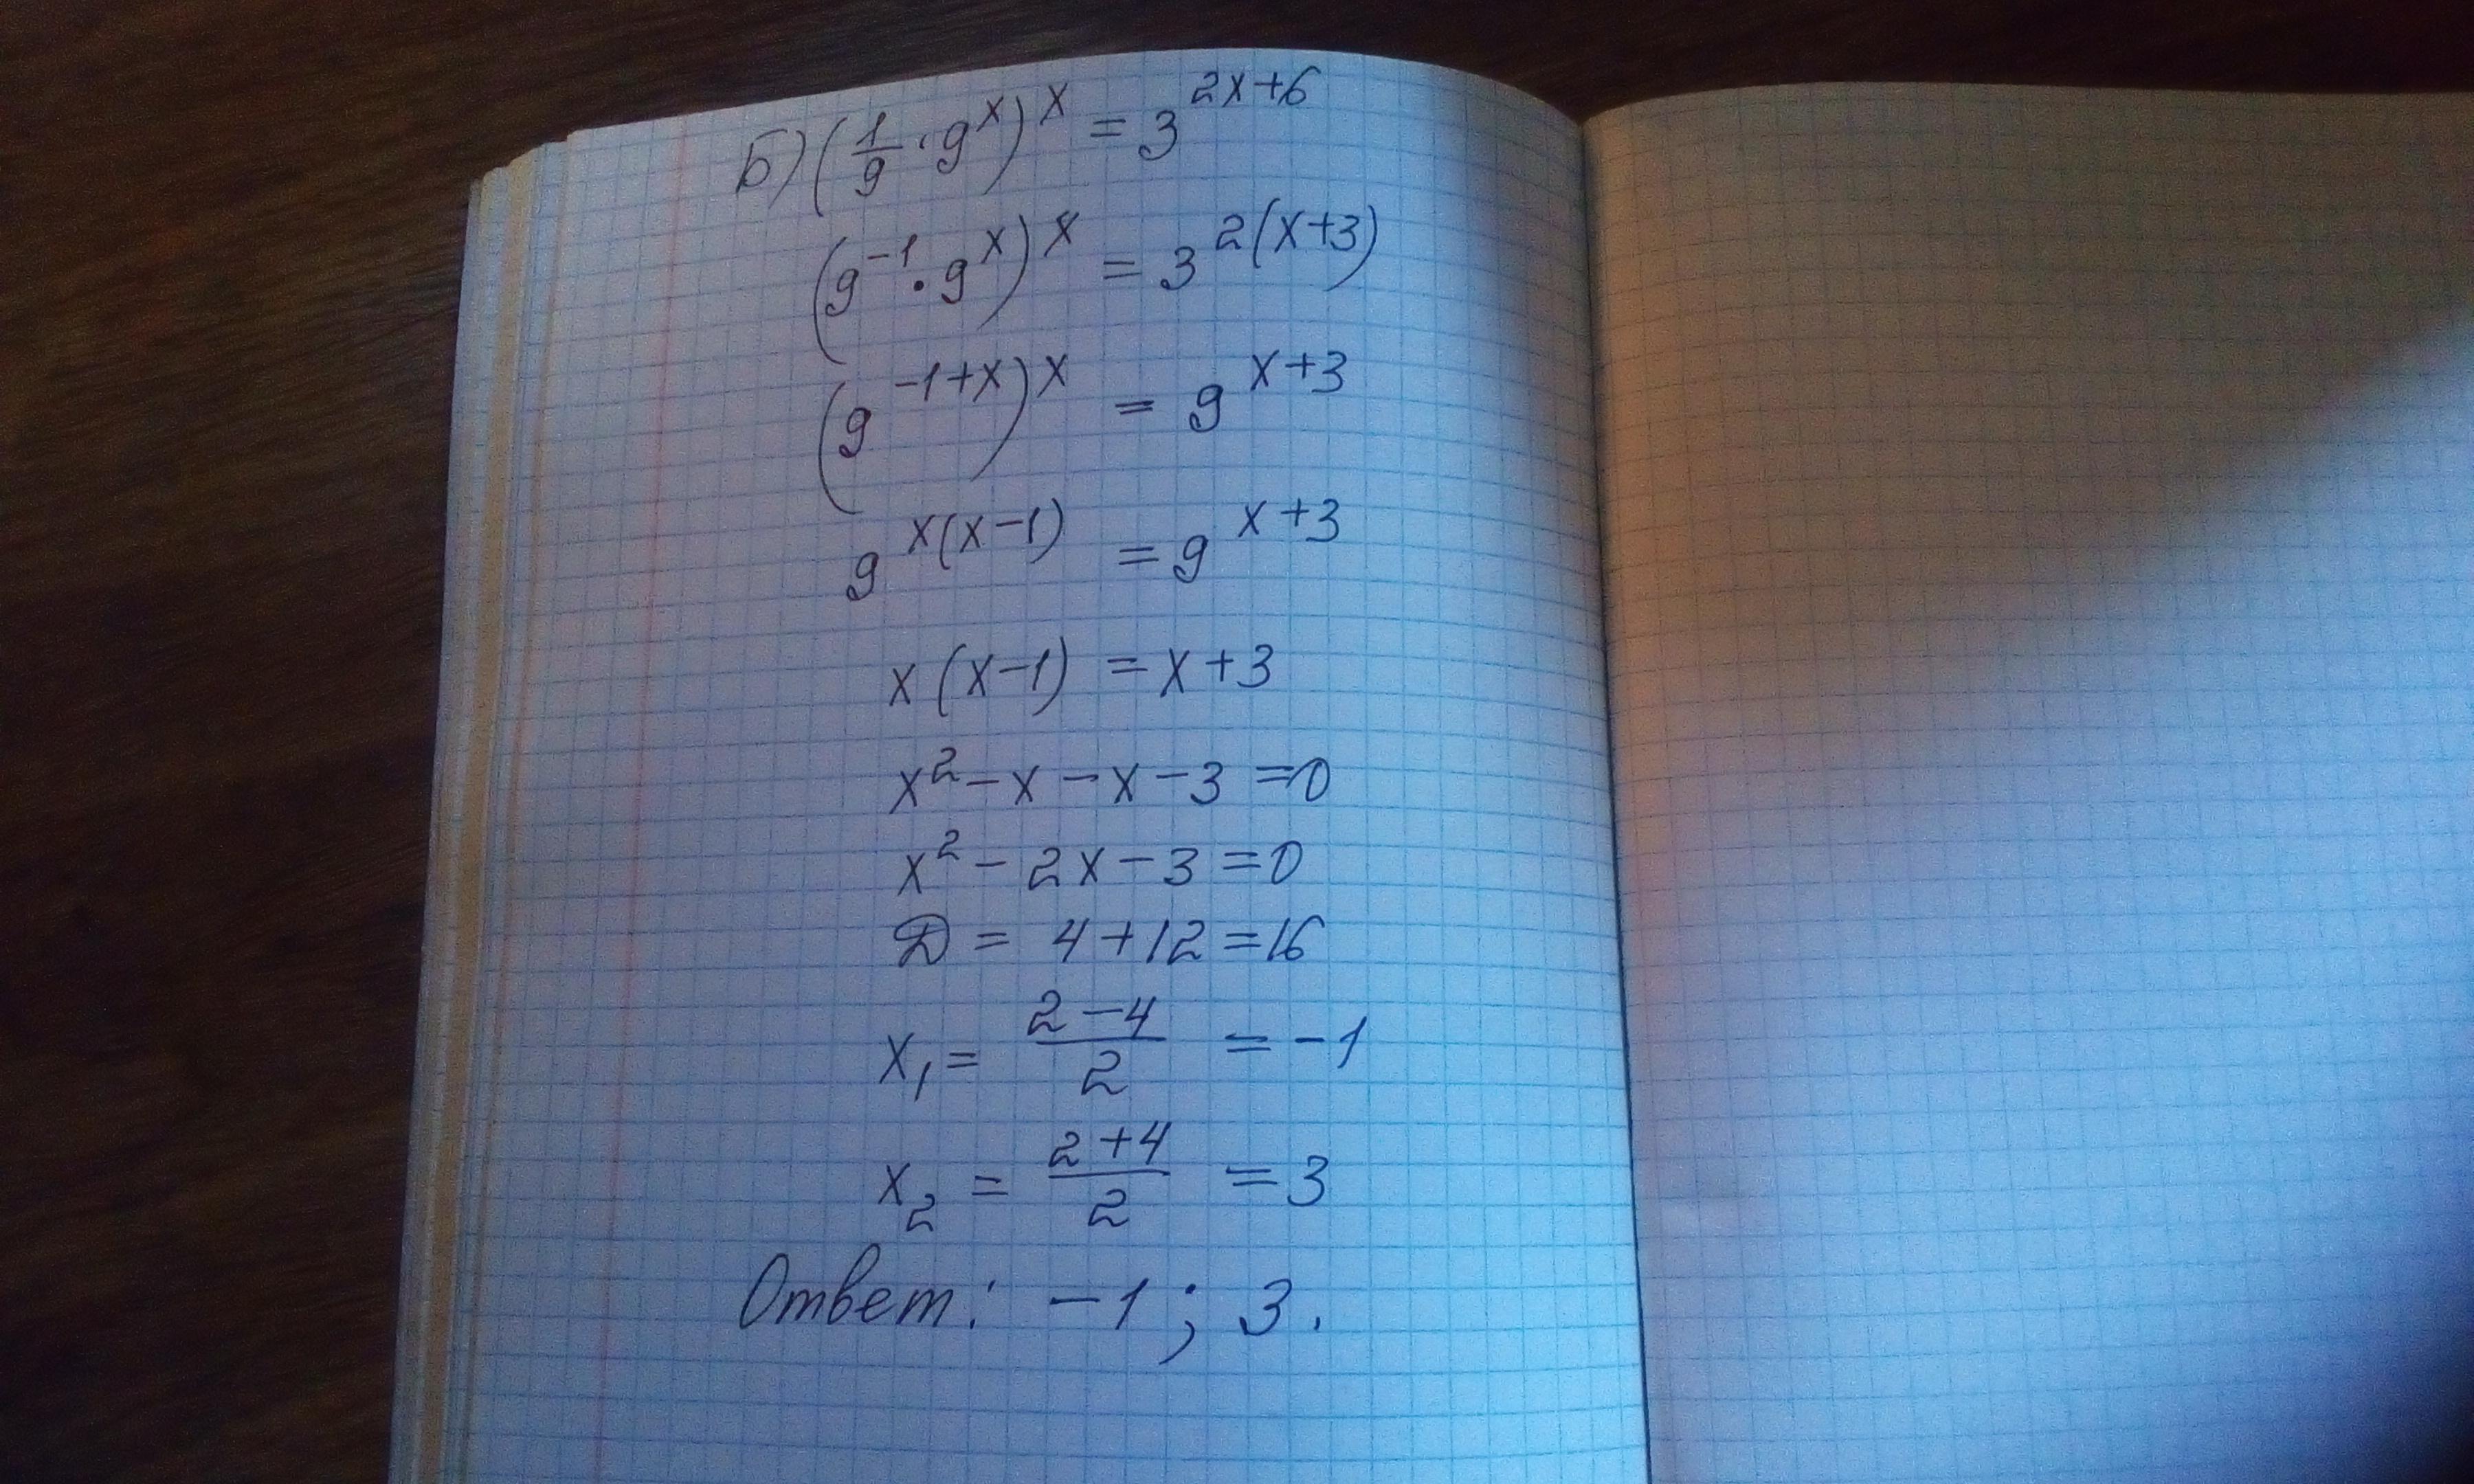 Б) (1/9 · 9^x)^x = 3^(2x+6)
(9^(-1) · 9^x)^x = 3^(2(x+3))
(9^(-1+x))^x = 9^(x+3)
9^(x(x-1)) = 9^(x+3)
x(x-1) = x+3
x² - x - x - 3 = 0
x² - 2x - 3 = 0
Д = 4 + 12 = 16
x₁ = (2-4)/2 = -1
x₂ = (2+4)/2 = 3
Ответ: -1; 3.